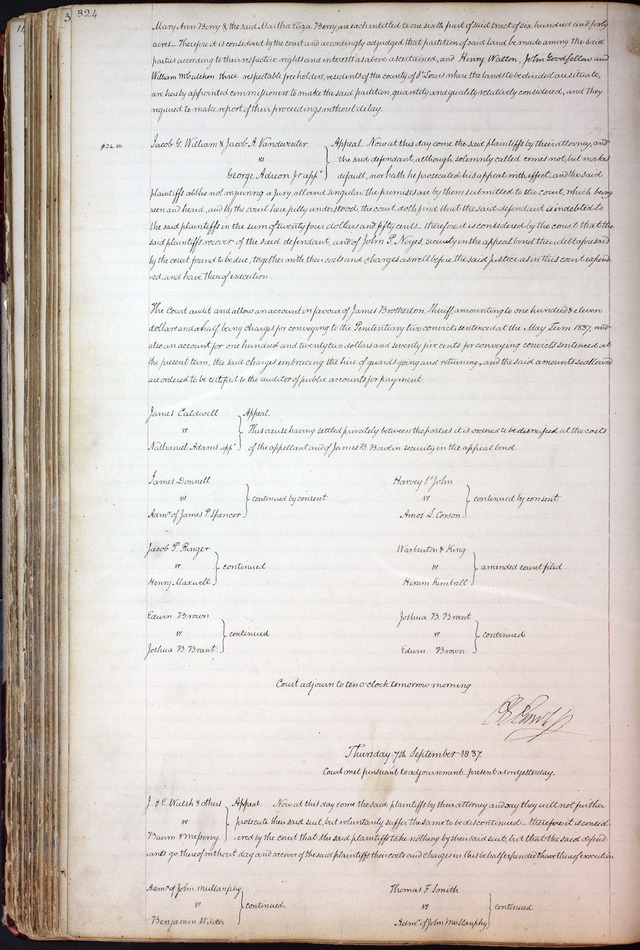 324
Mary Ann Berry & the said Martha Eliza Berry, are each entitled to one sixth part of said tract of six hundred and forty
acres. Therefore it is considered by the court and accordingly adjudged that partition of said land be made among the said
parties according to their respective rights and interest as above ascertained, and Henry Walton, John Goodfellow and
William McCutchen three respectable freeholders, residents of the county of St Louis where the lands to be divided are situate,
are hereby appointed commissioners to make the said partition, quantity and quality relatively considered, and they
required to make report of their proceedings without delay.
$24.50
Jacob G. William & Jacob A Vandeventer
vs
George Adreon Jr appt
Appeal Now at this day come the said plaintiffs by their attorney, and
the said defendant, although solemnly called comes not, but makes
default, nor hath he prosecuted his appeal with effect, and the said
plaintiffs also not requiring a Jury, all and singular the premises are by them submitted to the court, which being
seen and heard, and by the court here fully understood, the court doth find that the said defendant is indebted to
the said plaintiffs in the sum of twenty four dollars and fifty cents. therefore it is considered by the court that the
said plaintiffs recover of the said defendant, and of John P. Noyes security in the appeal bond their debt aforesaid
by the court found to be due, together with their costs and charges as well before the said Justice as in this court expen
ded and have thereof execution
The Court audit and allow an account in favour of James Brotherton, Sheriff amounting to one hundred & eleven
dollars and a half, being charges for conveying to the Penitentiary two convicts sentenced at the May Term 1837, and
also an account for one hundred and twenty two dollars and seventy five cents for conveying convicts sentenced at
the present term, the said charges embracing the hire of guards going and returning, and the said amounts so allowed
are ordered to be certified to the auditor of public accounts for payment.
James Caldwell
vs
Nathaniel Adams appt
Appeal
This cause having settled privately between the parties it is ordered to be dismissed at the costs
of the appellant and of James B Bowlin security in the appeal bond.
James Donnell
vs
Admr of James P. Spencer
continued by consent
Harvey St John
vs
Amos L. Corson
continued by consent
Jacob P. Ringer
vs
Henry Maxwell
continued
Warburton & King
vs
Hiram Kimball
amended count filed
Edwin Brown
vs
Joshua B. Brant
continued
Joshua B. Brant
vs
Edwin Brown
continued
Court adjourn to ten o'clock tomorrow morning
Thursday 7th September 1837.
Court met pursuant to adjournment present as on yesterday.
J. & E. Walsh & others
vs
Appeal. Now at this day come the said plaintiffs by their attorney and say they will not further
prosecute their said suit, but voluntarily suffer the same to be discontinued. therefore it is consid
ered by the court that the said plaintiffs take nothing by their said suit, but that the said defend
ants go thereof without day and recover of the said plaintiffs their costs and charges in this behalf expended & have thereof execution
Admr of John Mullanphy
vs
Benjamin Wilder
continued
Thomas F. Smith
vs
Admr of John Mullanphy
continued